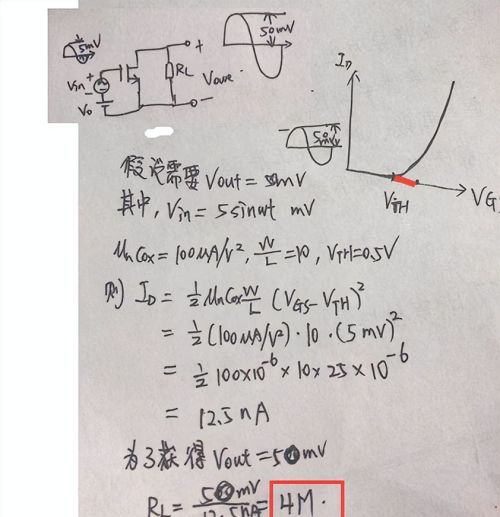 5mV
Vin
+
-
Vo
RL
+
Vout
-
50mV
ID
50mV
VTH
VG
假设需要 Vout = 50mV
其中, Vin = 5 sinwt mV
μnCox = 100μA/V², W/L = 10, VTH = 0.5V
则 ID = 1/2 μnCox W/L (VGS - VTH)²
= 1/2 (100μA/V²) · 10 · (5mV)²
= 1/2 100×10⁻⁶ × 10 × 25 × 10⁻⁶
= 12.5nA
为了获得 Vout = 50mV
RL = 50mV/12.5nA = 4M.